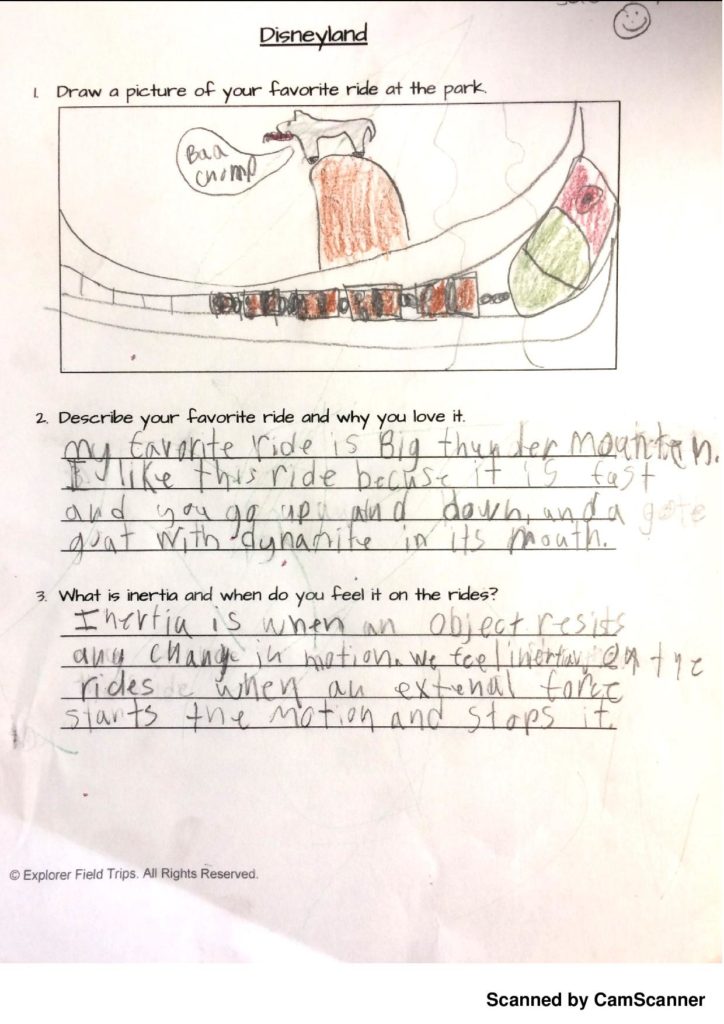 Disneyland
1. Draw a picture of your favorite ride at the park.
Baa
chomp
2. Describe your favorite ride and why you love it.
my favorite ride is Big thunder mountan.
I like this ride becuse it is fast
and you go up and down, and a gote
goat with dynamite in its mouth.
3. What is inertia and when do you feel it on the rides?
Inertia is when an object resists
any change in motion. we feel inertay on the
rides when an extenal force
starts the motion and stops it.
© Explorer Field Trips. All Rights Reserved.
Scanned by CamScanner